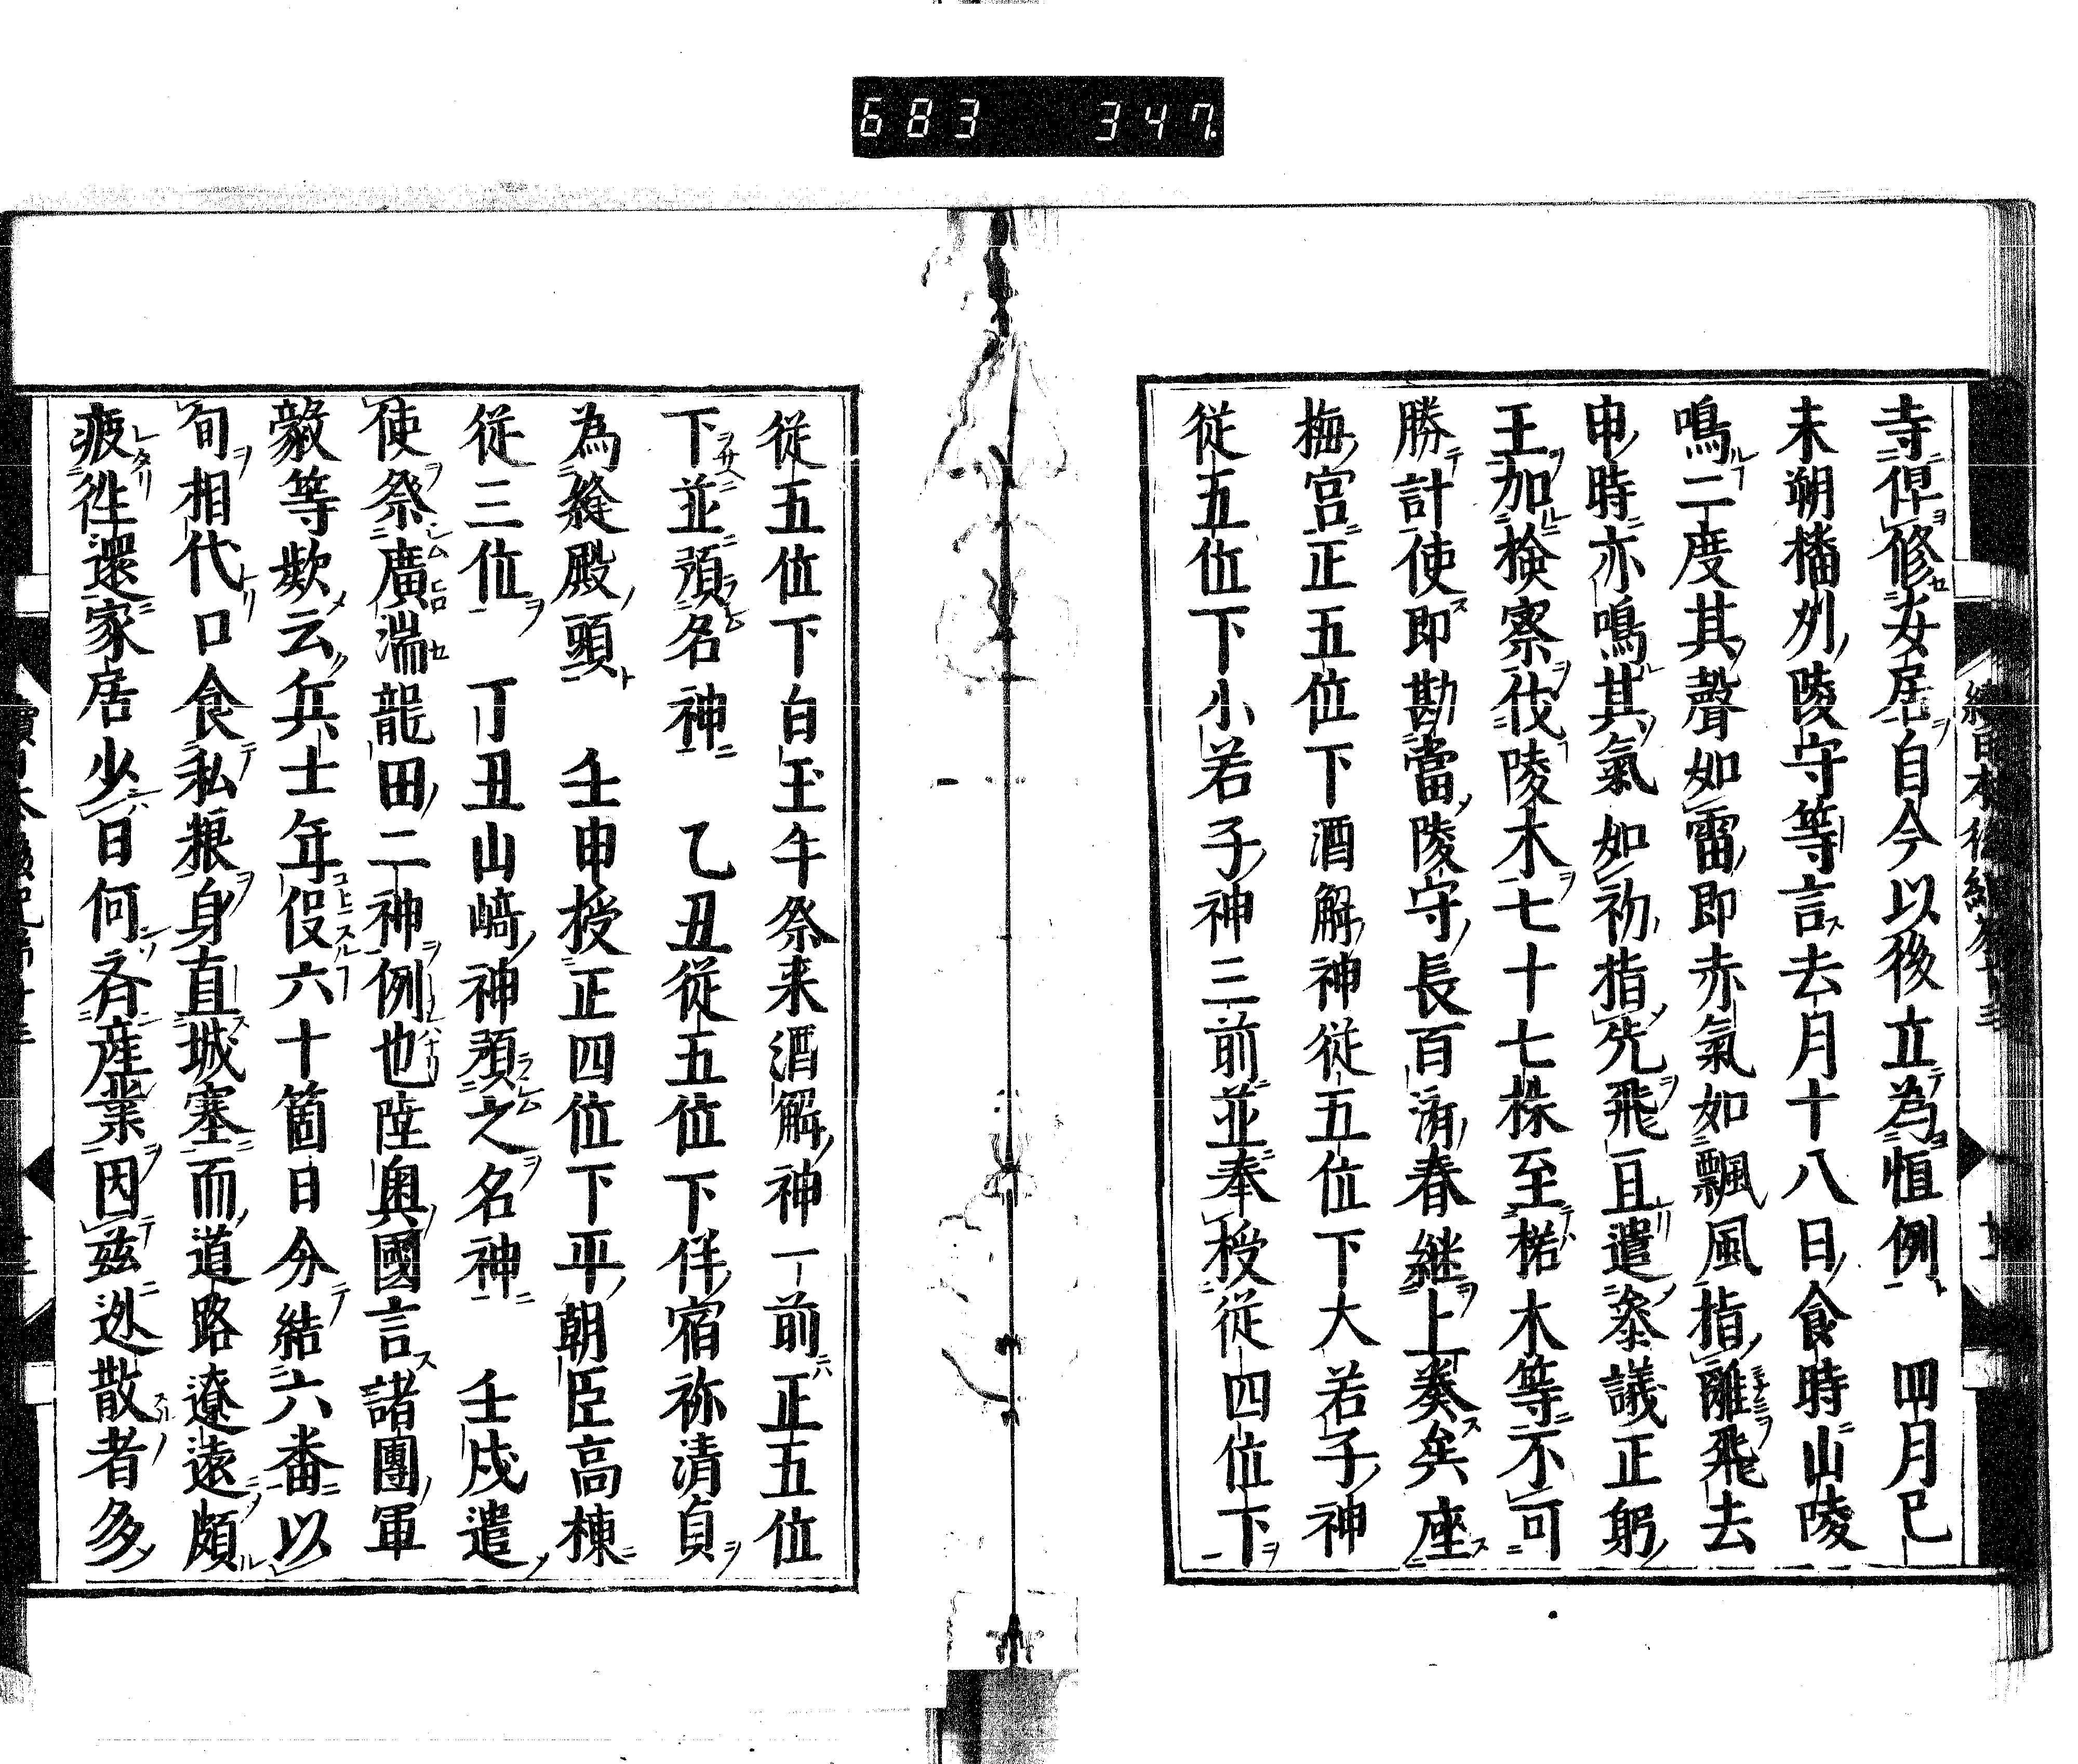 683 347
寺俾修安居自今以後立為恒例 四月己
未朔楯列陵守等言去月十八日食時山陵
鳴二度其聲如雷即赤氣如飄風指離飛去
申時亦鳴其氣如初指兊飛且遣叅議正躬
王加檢察伐陵木七十七株至楉木等不可
勝計使即勘當陵守長百濟春継上奏矣座
梅宮正五位下酒解神従五位下大若子神
従五位下小若子神三前並奉授従四位下
従五位下白玉午祭来酒解神一前正五位
下並預名神 乙丑従五位下伴宿祢清貞
為縫殿頭 壬申授正四位下平朝臣高棟
従三位 丁丑山﨑神預之名神 壬戌遣
使祭廣湍龍田二神例也陸奥國言諸團軍
毅等欵云兵士年役六十箇日分結六番以
旬相代口食私粮身直城塞而道路遼遠頗
疲徃還家居少日何済産業因茲迯散者多